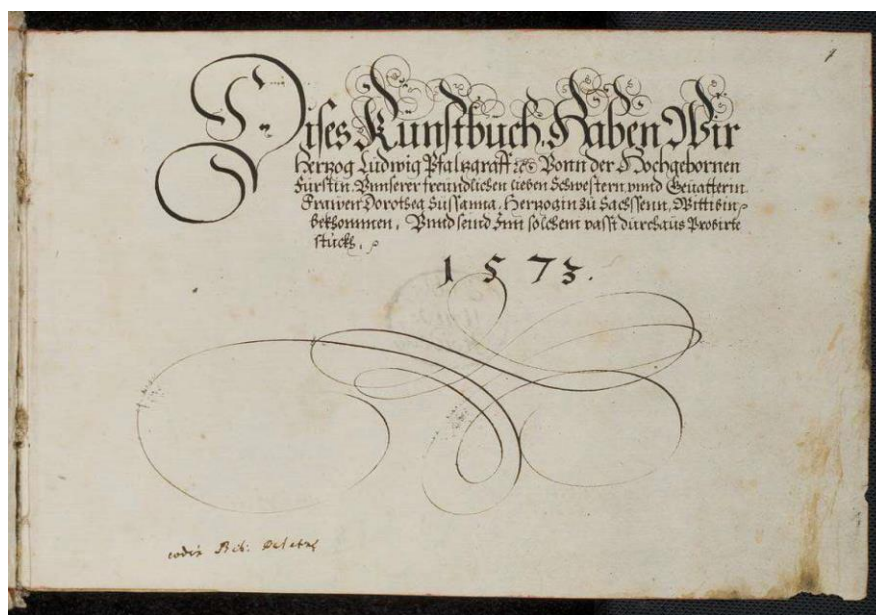 1
Dises Kunstbuch, Haben Wir
Hertzog Ludwig Pfaltzgraff &c Vonn der Hochgebornen
Fürstin, Vnnserer freundlichen lieben Schwestern vnnd Geuatterin
Frawen Dorothea Sussanna, Hertzogin zü Sachssenn, Wittibin,
bekhommen, Vnnd seind Inn solchem vasst dürchaus Probirte
stückh,
1573.
codex Bib: Palat